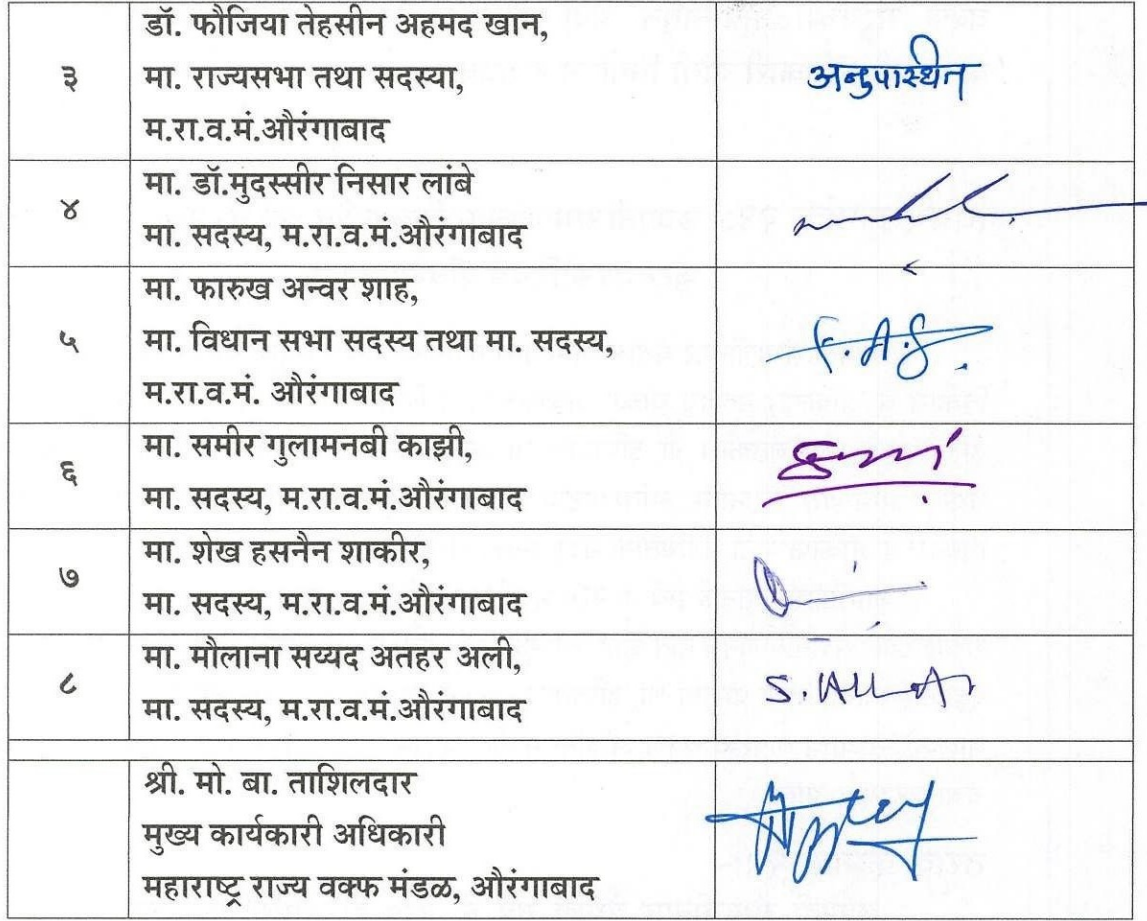 डॉ. फौजिया तेहसीन अहमद खान,
३ मा. राज्यसभा तथा सदस्या, अनुपास्थित
म.रा.व.मं.औरंगाबाद
मा. डॉ.मुदस्सीर निसार लांबे
४
मा. सदस्य, म.रा.व.मं.औरंगाबाद
मा. फारुख अन्वर शाह,
५ मा. विधान सभा सदस्य तथा मा. सदस्य, F.A.S.
म.रा.व.मं. औरंगाबाद
मा. समीर गुलामनबी काझी,
६
मा. सदस्य, म.रा.व.मं.औरंगाबाद
मा. शेख हसनैन शाकीर,
७
मा. सदस्य, म.रा.व.मं.औरंगाबाद
मा. मौलाना सय्यद अतहर अली,
८
मा. सदस्य, म.रा.व.मं.औरंगाबाद
श्री. मो. बा. ताशिलदार
मुख्य कार्यकारी अधिकारी
महाराष्ट्र राज्य वक्फ मंडळ, औरंगाबाद